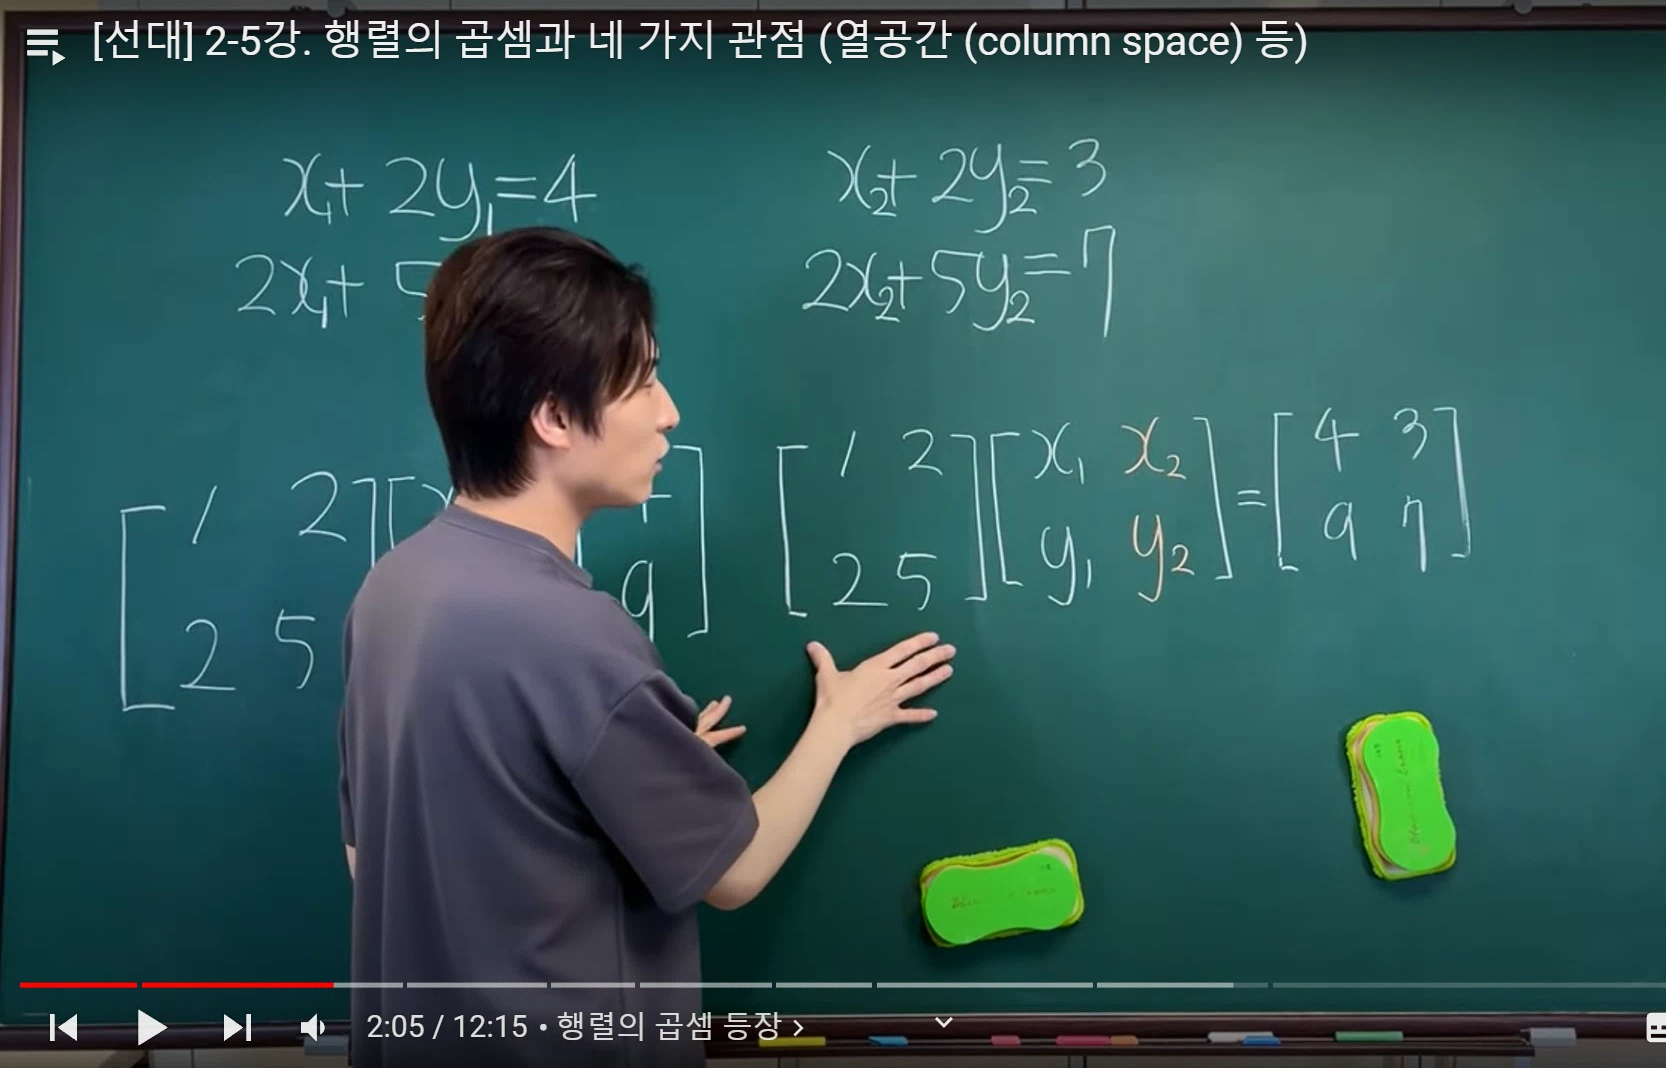 [선대] 2-5강. 행렬의 곱셈과 네 가지 관점 (열공간 (column space) 등)
x₁+ 2y₁=4
2x₁+ 5
x₂+ 2y₂=3
2x₂+5y₂=7
[1 2
2 5
9]
[1 2][x₁ x₂]=[4 3]
[2 5][y₁ y₂] [9 7]
2:05 / 12:15 • 행렬의 곱셈 등장 >